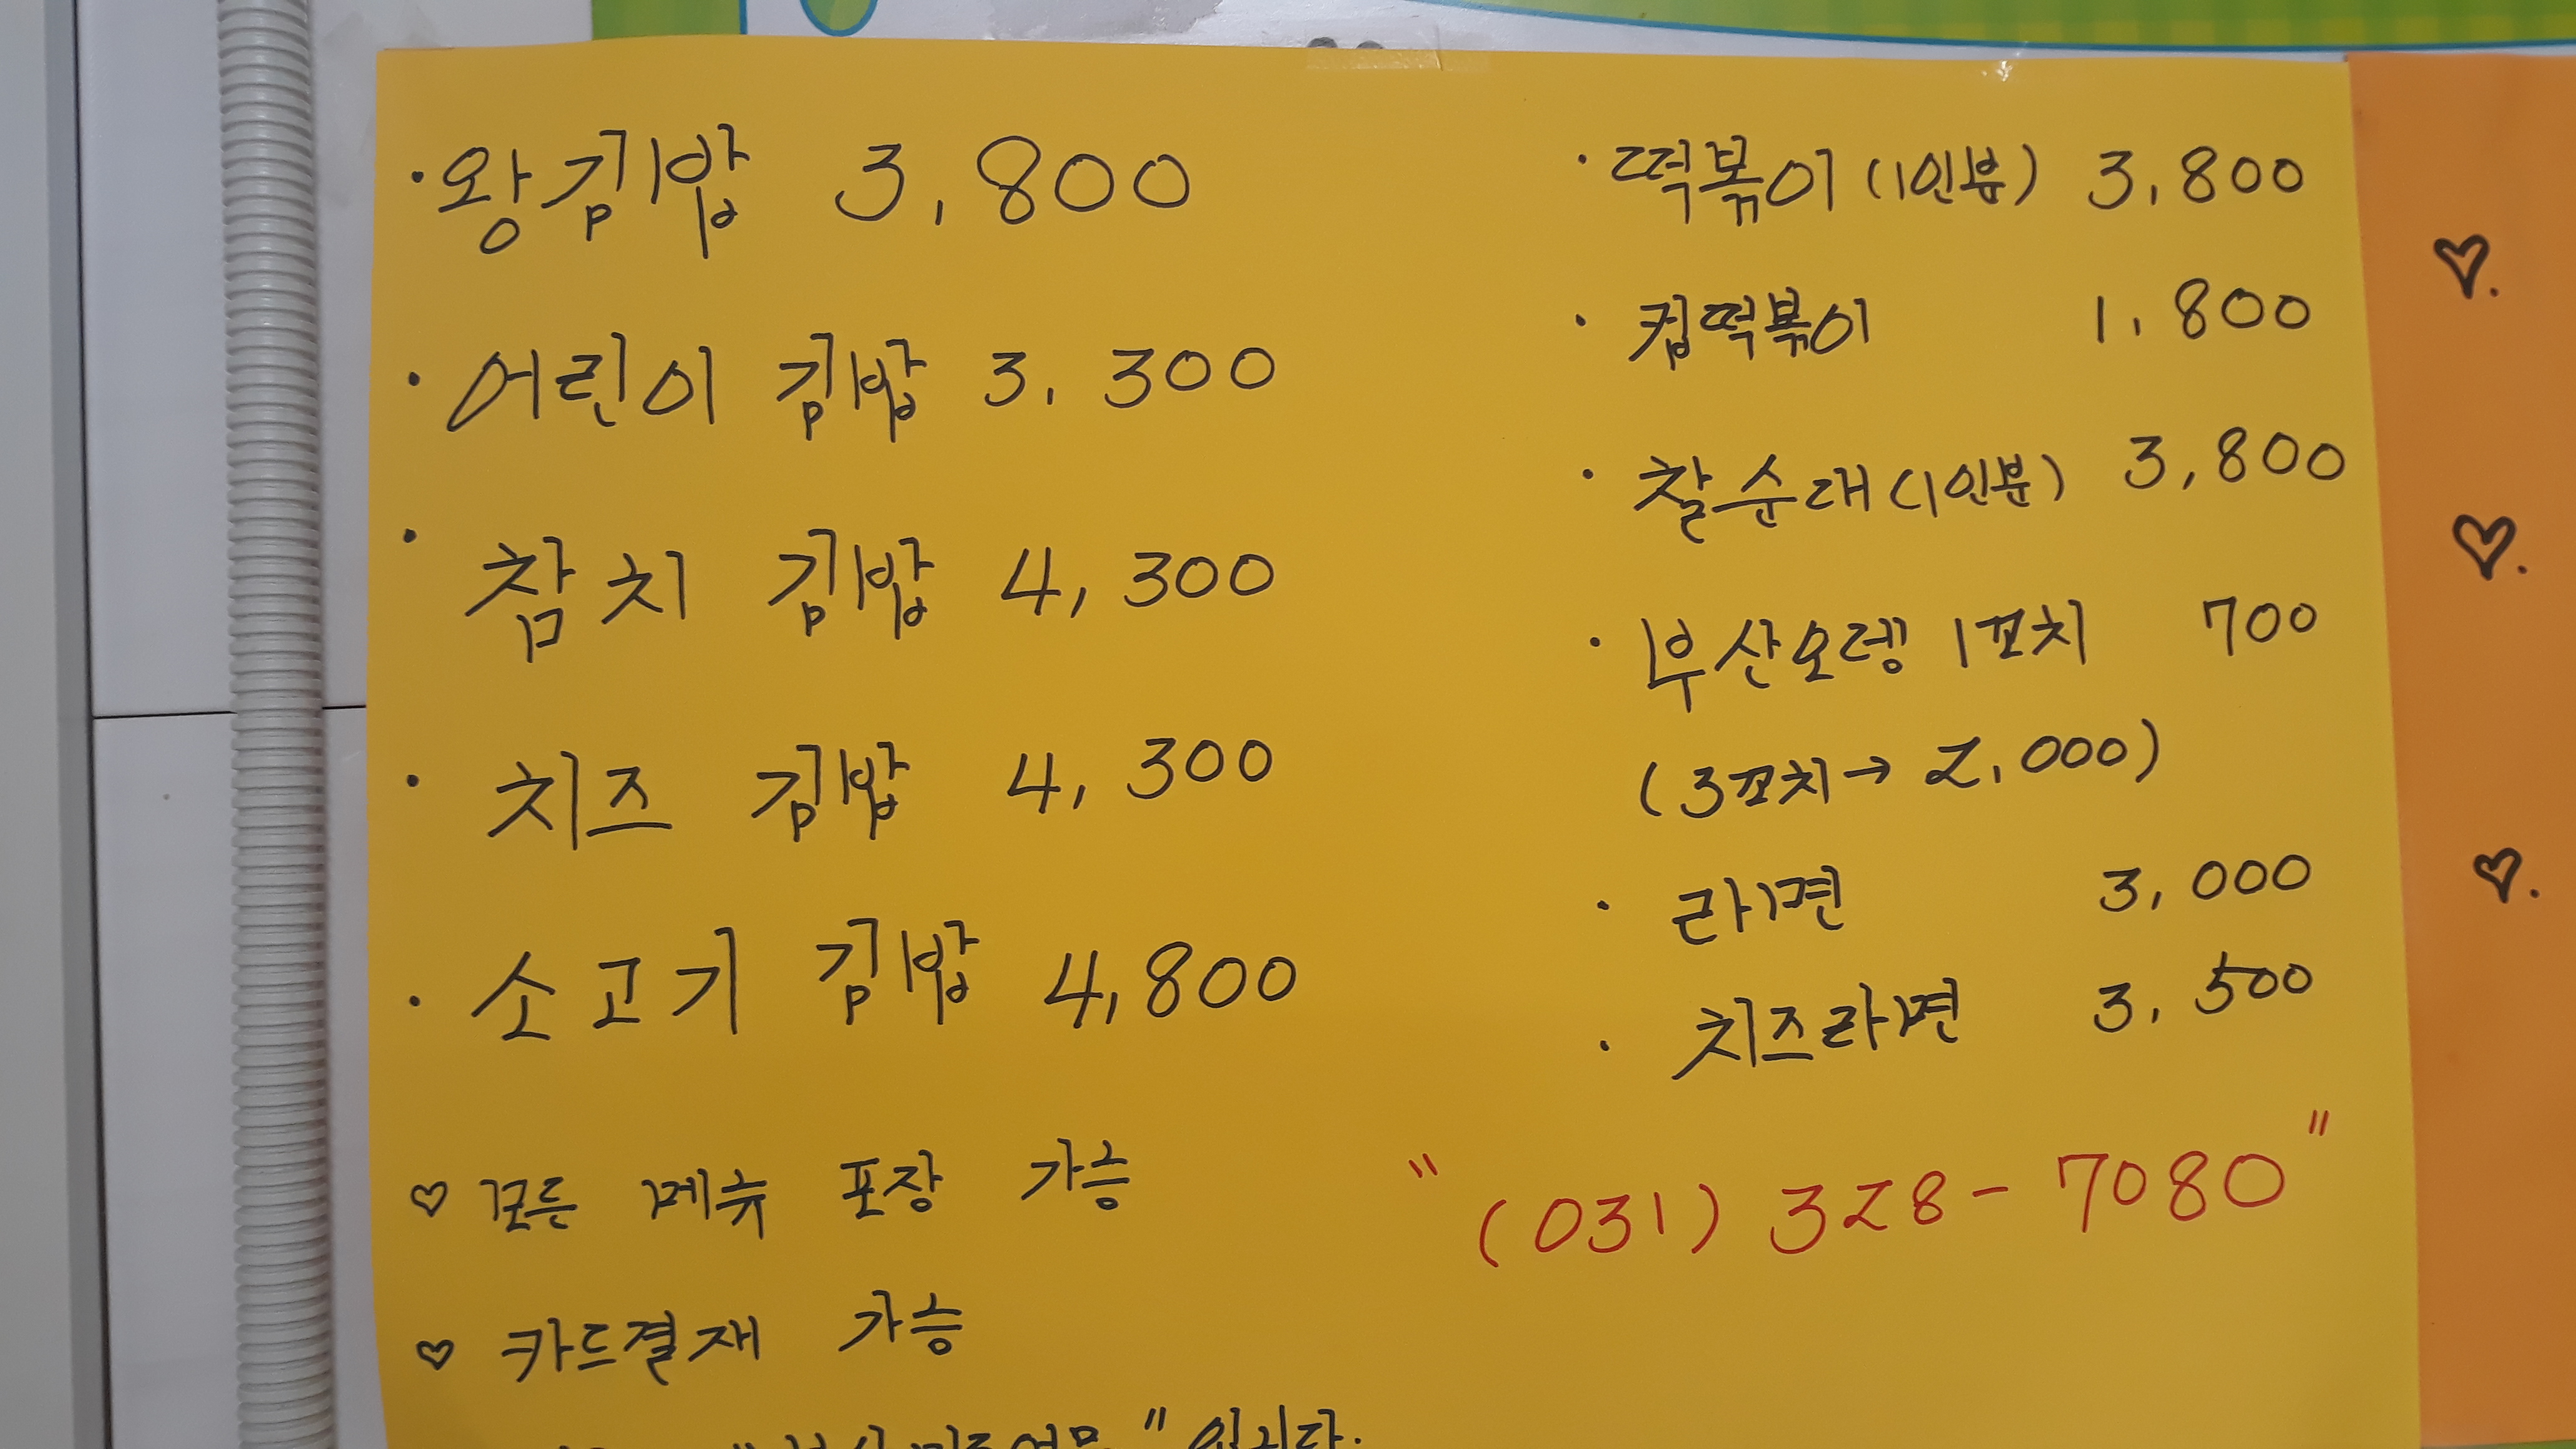 · 왕김밥 3,800
· 어린이 김밥 3,300
· 참치 김밥 4,300
· 치즈 김밥 4,300
· 소고기 김밥 4,800
♡ 모든 메뉴 포장 가능
♡ 카드결재 가능
" 입니다.
· 떡볶이 (1인분) 3,800
· 컵떡볶이 1,800
· 찰순대 (1인분) 3,800
· 부산오뎅 1꼬치 700
(3꼬치→ 2,000)
· 라면 3,000
· 치즈라면 3,500
"(031) 328-7080"
♡.
♡.
♡.